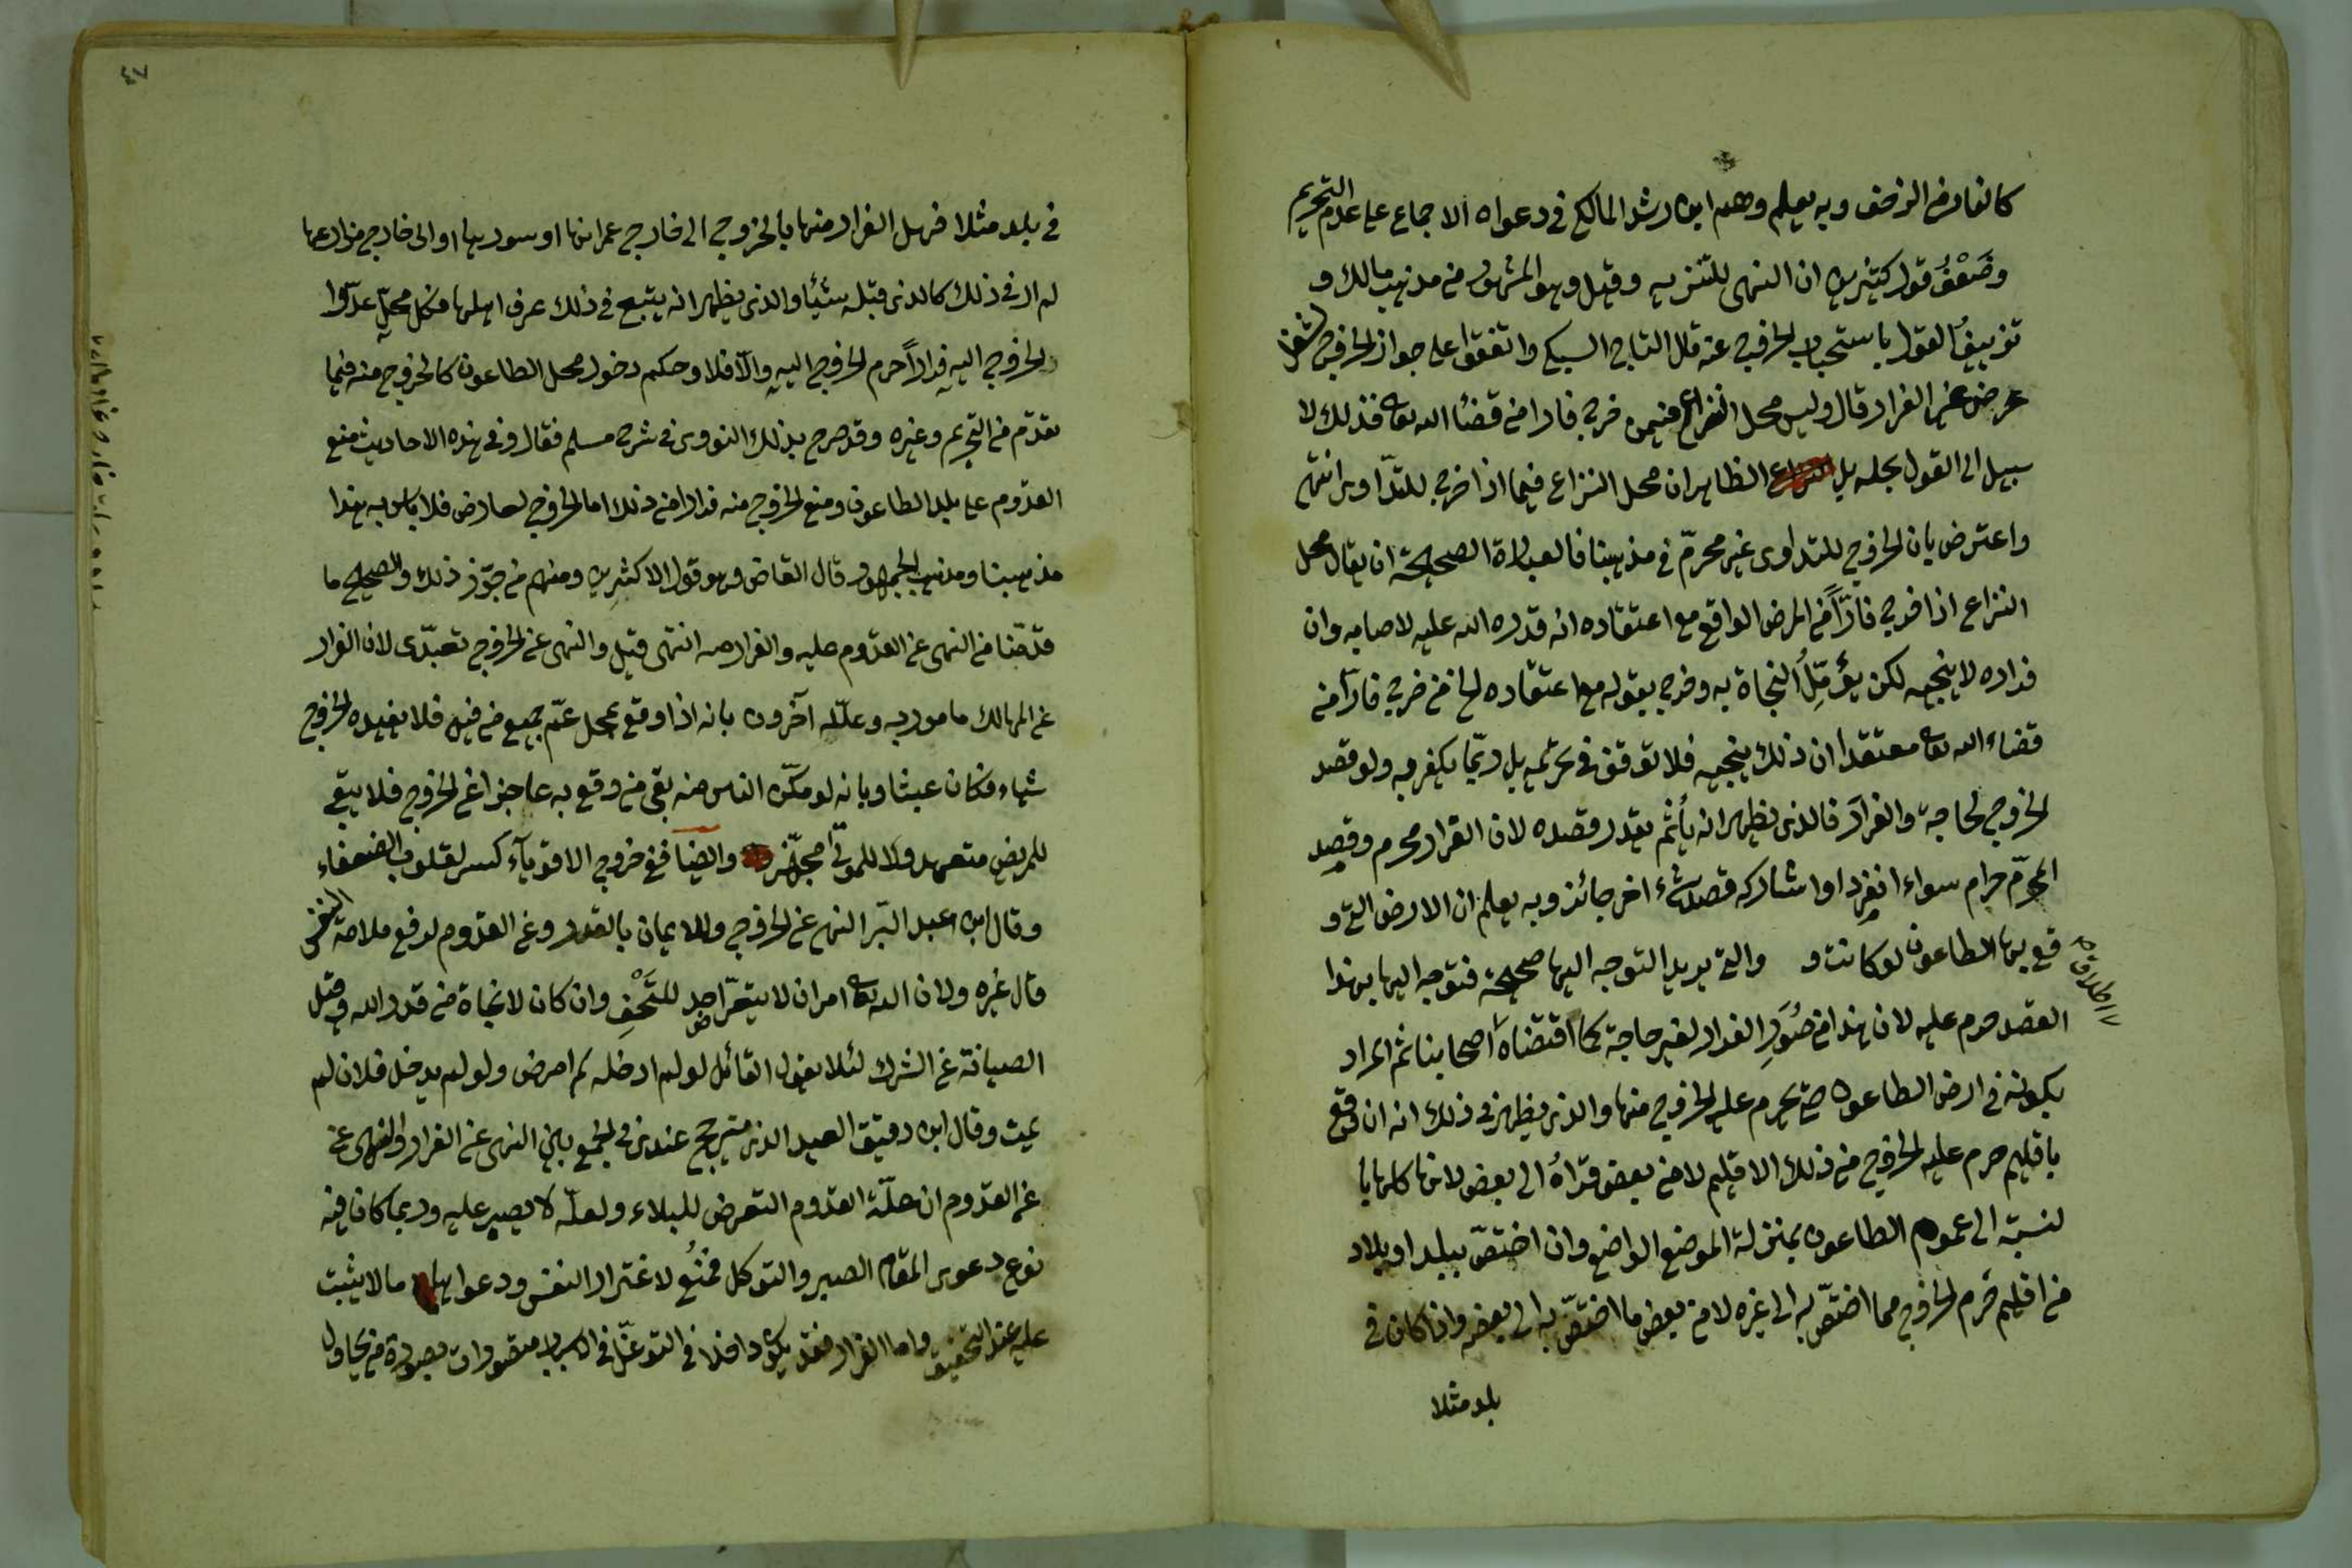 كالفار من الزحف وبه يعلم وهم ابن رشد المالكي في دعواه الاجماع على عدم التحريم
وضَعْفُ قول كثيرين ان النهى للتنزيه وقيل وهو المشهور من مذهب مالك و
تزييفُ القول باستحباب الخروج عنه قال التاج السبكي واتفقوا على جواز الخروج لشغل
عرض غير الفرار قال وليس محل النزاع فيمن خرج فارا من قضاء الله تعالى فذلك لا
سبيل الى القول بحله بل الظاهر ان محل النزاع فيما اذا خرج للتداوى انتهى
واعترض بان الخروج للتداوى غير محرّم في مذهبنا فالعبارة الصحيحة ان يقال محل
النزاع اذا خرج فارّاً من المرض الواقع مع اعتقاده انه قدره الله عليه لاصابه وان
فراره لا ينجيه لكن يؤمّلُ النجاة به وخرج بقوله مع اعتقاده الخ من خرج فارّا من
قضاء الله تعالى معتقدا ان ذلك ينجيه فلا توقف في تحريمه بل ربّما يكفر به ولو قصد
الخروج لحاجة والفرار فالذى يظهر انه يأثم بقدر قصده لان الفرار محرم وقصد
المحرّم حرام سواء انفرد او شاركه قصد شىء اخر جائز وبه يعلم ان الارض التي و
قع بها الطاعون لو كانت و والتي يريد التوجه اليها صحيحة فتوجه اليها بهذا
القصد حرم عليه لان هذا من صُوَرِ الفرار لغير حاجة كما اقتضاه اصحابنا ثم المراد
بكونه في ارض الطاعون حتى يحرم عليه الخروج منها والذى يظهر في ذلك انه ان وقع
باقليم حرم عليه الخروج من ذلك الاقليم لا من بعض قراهُ الى بعض لانها كلها با
لنسبة الى عموم الطاعون بمنزلة الموضع الواضع وان اختصّ ببلد او بلاد
من اقليم حرم الخروج مما اختصّ به الى غيره لا من بعض ما اختصّ به الى بعضه واذا كان في
بلد مثلا
في بلد مثلا فهل الفرار منها بالخروج الى خارج عمرانها او سورها او الى خارج مزارعها
لم ار في ذلك كالذى قبله شيئا والذى يظهر انه يتبع في ذلك عرف اهلها فكل محلّ عدّوا
الخروج اليه فراراً حرم الخروج اليه والّا فلا وحكم دخول محل الطاعون كالخروج منه فيما
تقدّم من التحريم وغيره وقد صرح بذلك النووى في شرح مسلم فقال وفي هذه الاحاديث منع
القدوم على بلد الطاعون ومنع الخروج منه فرارا من ذلك اما الخروج لعارض فلا بأس به هذا
مذهبنا ومذهب الجمهور قال القاضى وهو قول الاكثرين ومنهم من جوّز ذلك والصحيح ما
قدّمنا من النهى عن القدوم عليه والفرار منه انتهى قيل والنهى عن الخروج تعبّدى لان الفرار
عن المهالك مامور به وعلّله آخرون بانه اذا وقع بمحل عمّ جميع من فيه فلا يفيده الخروج
شيأ فكان عبثا وبانه لو مكّن الناس منه بقى من وقع به عاجزا عن الخروج فلا يبقى
للمريض متعهد ولا للموتى مجهّز وايضا ففي خروج الاقوياء كسر لقلوب الضعفاء
وقال ابن عبد البّر النهى عن الخروج للايمان بالقدر وعن القدوم لدفع ملامة النفس
قال غيره ولان الله تعالى امر ان لا يتعرّض احد للحتف وان كان لا نجاة من قدر الله وقيل
الصيانة عن الشرك لئلا يقول القائل لو لم ادخله لم امرض ولو لم يدخل فلان لم
يمت وقال ابن دقيق العيد الذى يترجح عندى في الجمع بين النهى عن الفرار والنهى عن
عن القدوم ان علّة القدوم التعرض للبلاء ولعلّه لا يصبر عليه وربما كان فيه
نوع دعوى المقام الصبر والتوكل فمُنِعَ لاغترار النفس ودعواها ما لا يثبت
عليه عند التحقيق واما الفرار فقد يكون داخلا في التوغّل في الاسباب متصورا بصورة من يحاول